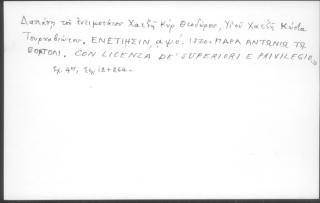 Δαπάνῃ τοῦ ἐντιμοτάτου Χατζῆ Κὺρ Θεοδώρου, Υἱοῦ Χατζῆ Κώστα
Τουρναβίωτου. ΕΝΕΤΙΗΣΙΝ, αψό. 1770. ΠΑΡΑ ΑΝΤΩΝΙΩ ΤΩ
ΒΟΡΤΟΛΙ. CON LICENZA DE' SUPERIORI E PRIVILEGIO.
Σχ. 4ον, Σελ. 12+264.